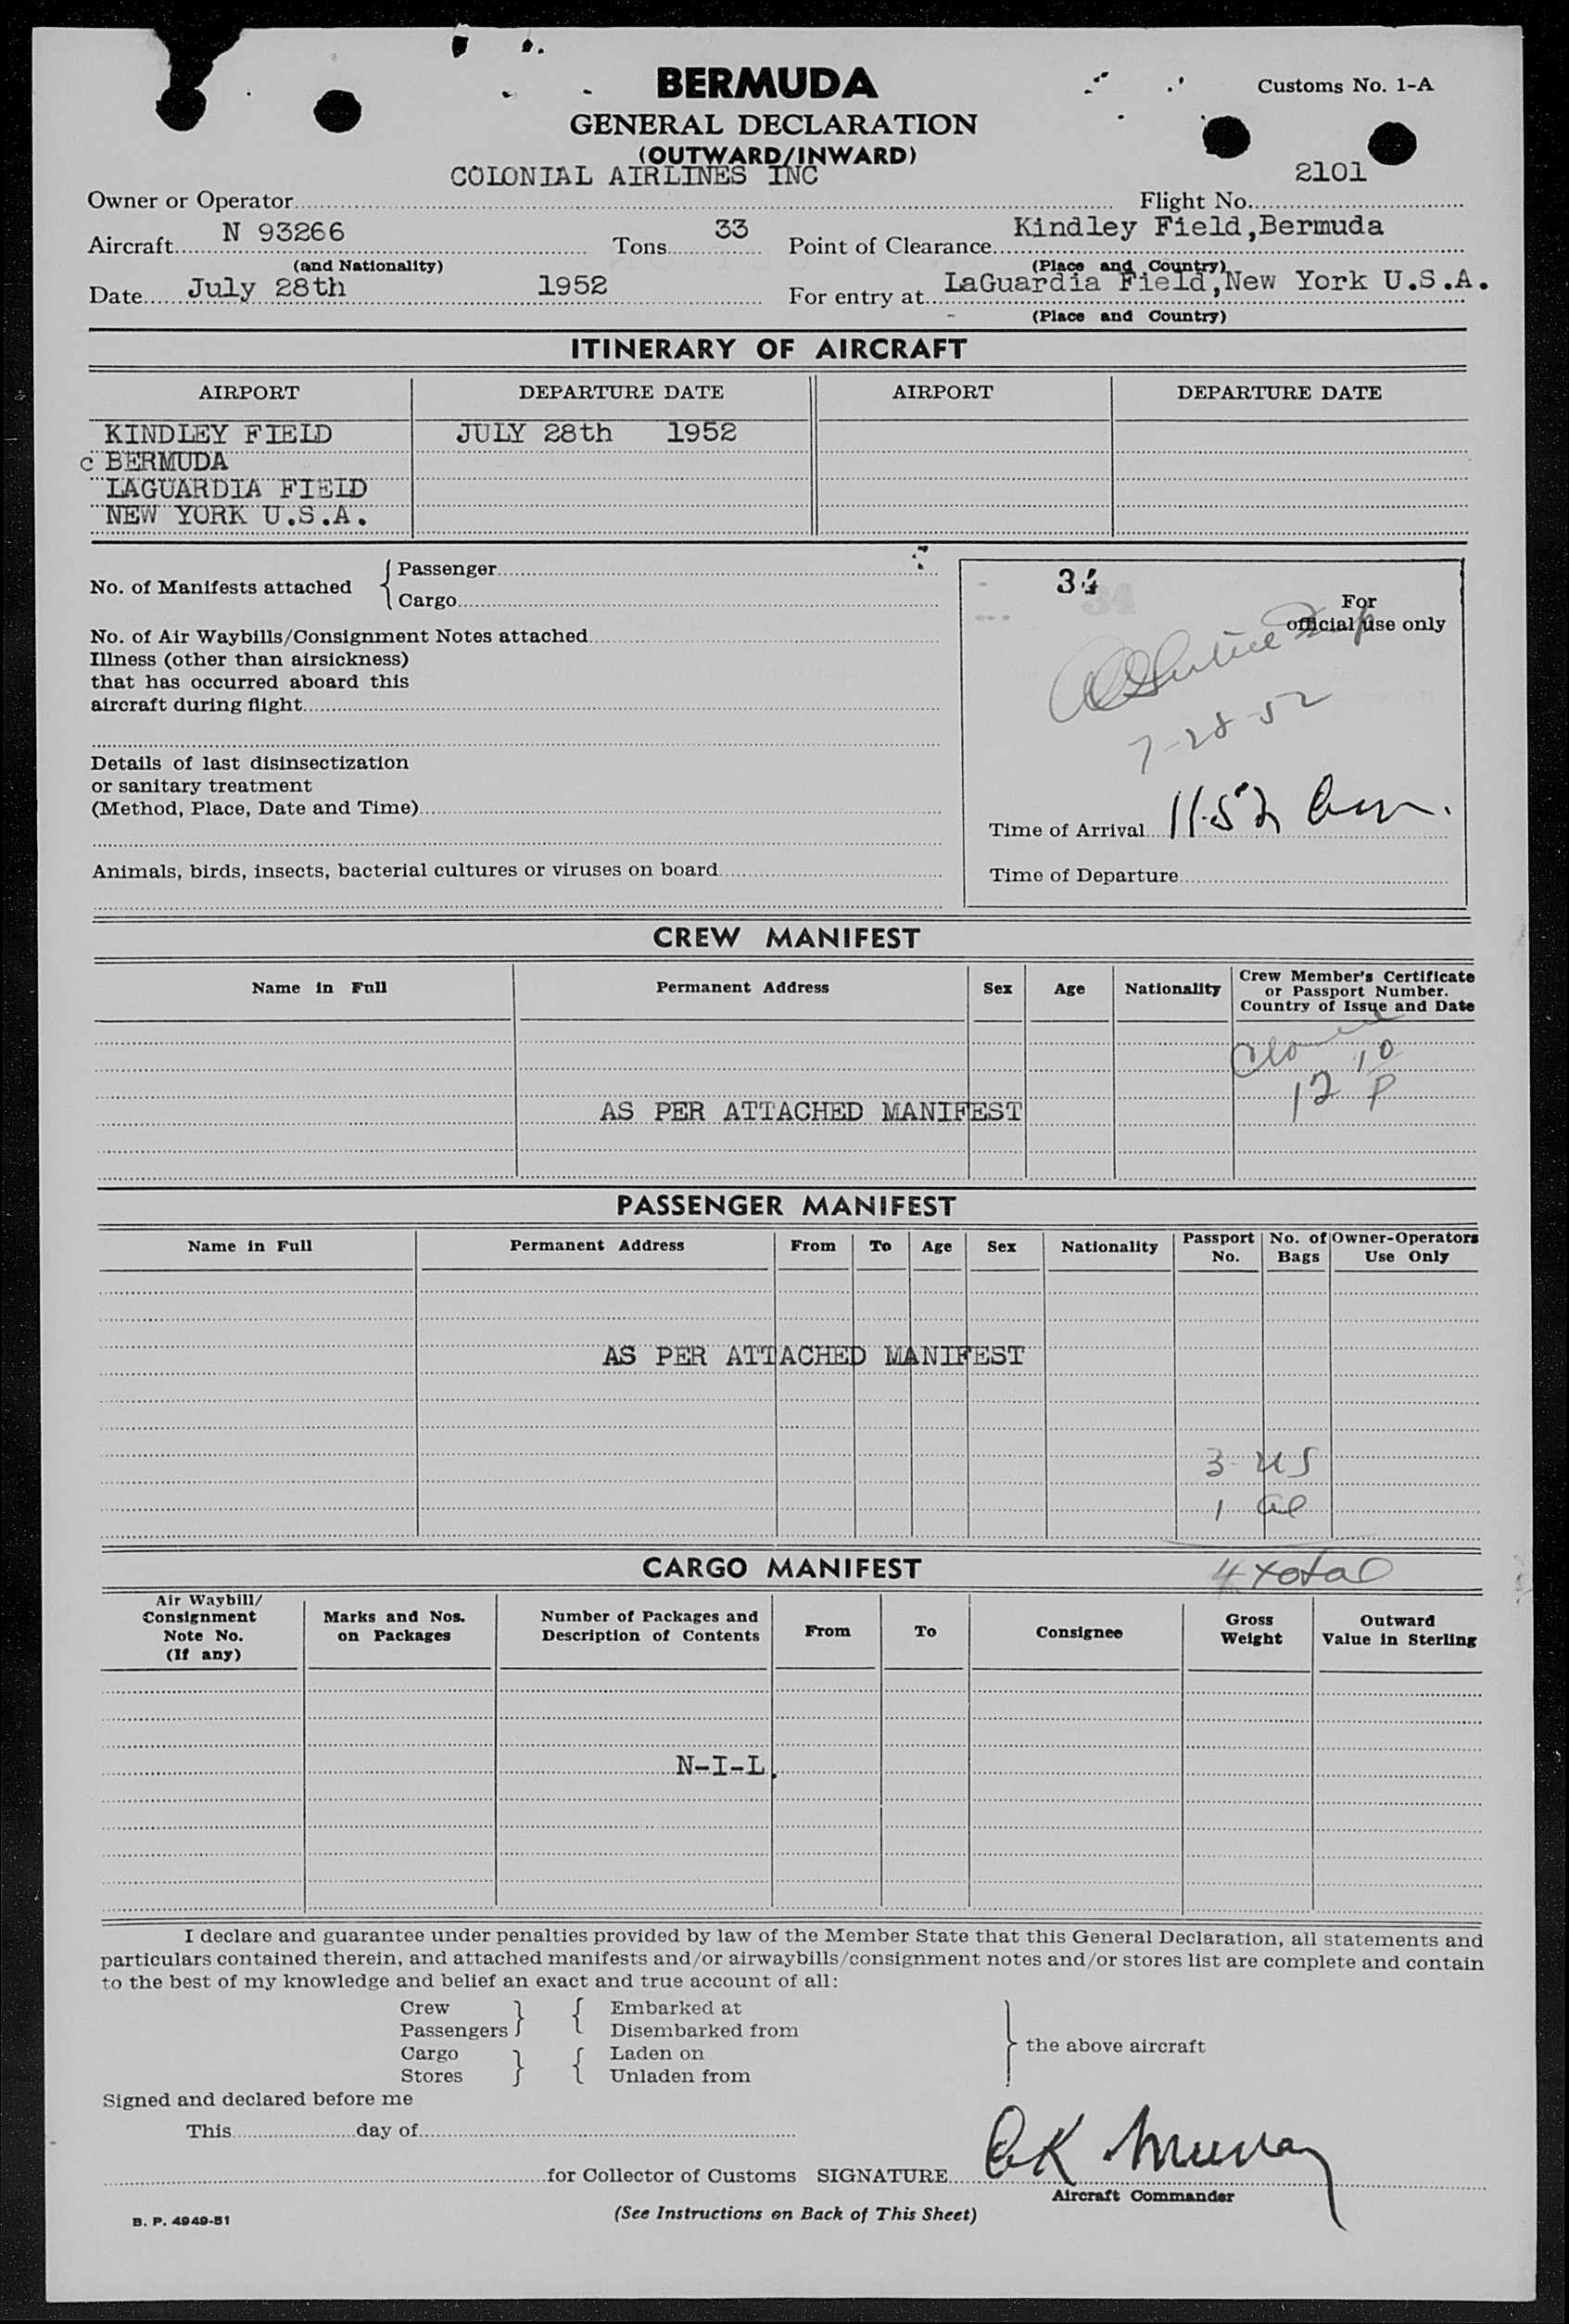 BERMUDA
Customs No. 1-A
GENERAL DECLARATION
(OUTWARD/INWARD)
COLONIAL AIRLINES INC 2101
Owner or Operator Flight No.
Aircraft N 93266 Tons 33 Point of Clearance Kindley Field,Bermuda
(and Nationality) (Place and Country)
Date July 28th 1952 For entry at LaGuardia Field,New York U.S.A.
(Place and Country)
ITINERARY OF AIRCRAFT
AIRPORT DEPARTURE DATE AIRPORT DEPARTURE DATE
KINDLEY FIELD JULY 28th 1952
c BERMUDA
LAGUARDIA FIELD
NEW YORK U.S.A.
No. of Manifests attached { Passenger
Cargo
No. of Air Waybills/Consignment Notes attached
Illness (other than airsickness)
that has occurred aboard this
aircraft during flight
Details of last disinsectization
or sanitary treatment
(Method, Place, Date and Time)
Animals, birds, insects, bacterial cultures or viruses on board
34
For
official use only
7-28-52
Time of Arrival 11.52 am.
Time of Departure
CREW MANIFEST
Name in Full Permanent Address Sex Age Nationality Crew Member's Certificate
or Passport Number.
Country of Issue and Date
12 10 P
AS PER ATTACHED MANIFEST
PASSENGER MANIFEST
Name in Full Permanent Address From To Age Sex Nationality Passport No. No. of Bags Owner-Operators Use Only
AS PER ATTACHED MANIFEST
3 US
1 al
4 total
CARGO MANIFEST
Air Waybill/
Consignment
Note No.
(If any)
Marks and Nos.
on Packages
Number of Packages and
Description of Contents
From To Consignee
Gross
Weight
Outward
Value in Sterling
N-I-L.
I declare and guarantee under penalties provided by law of the Member State that this General Declaration, all statements and
particulars contained therein, and attached manifests and/or airwaybills/consignment notes and/or stores list are complete and contain
to the best of my knowledge and belief an exact and true account of all:
Crew } { Embarked at
Passengers Disembarked from
Cargo } { Laden on
Stores Unladen from
} the above aircraft
Signed and declared before me
This day of
for Collector of Customs SIGNATURE OK Murray
Aircraft Commander
B. P. 4949-51
(See Instructions on Back of This Sheet)